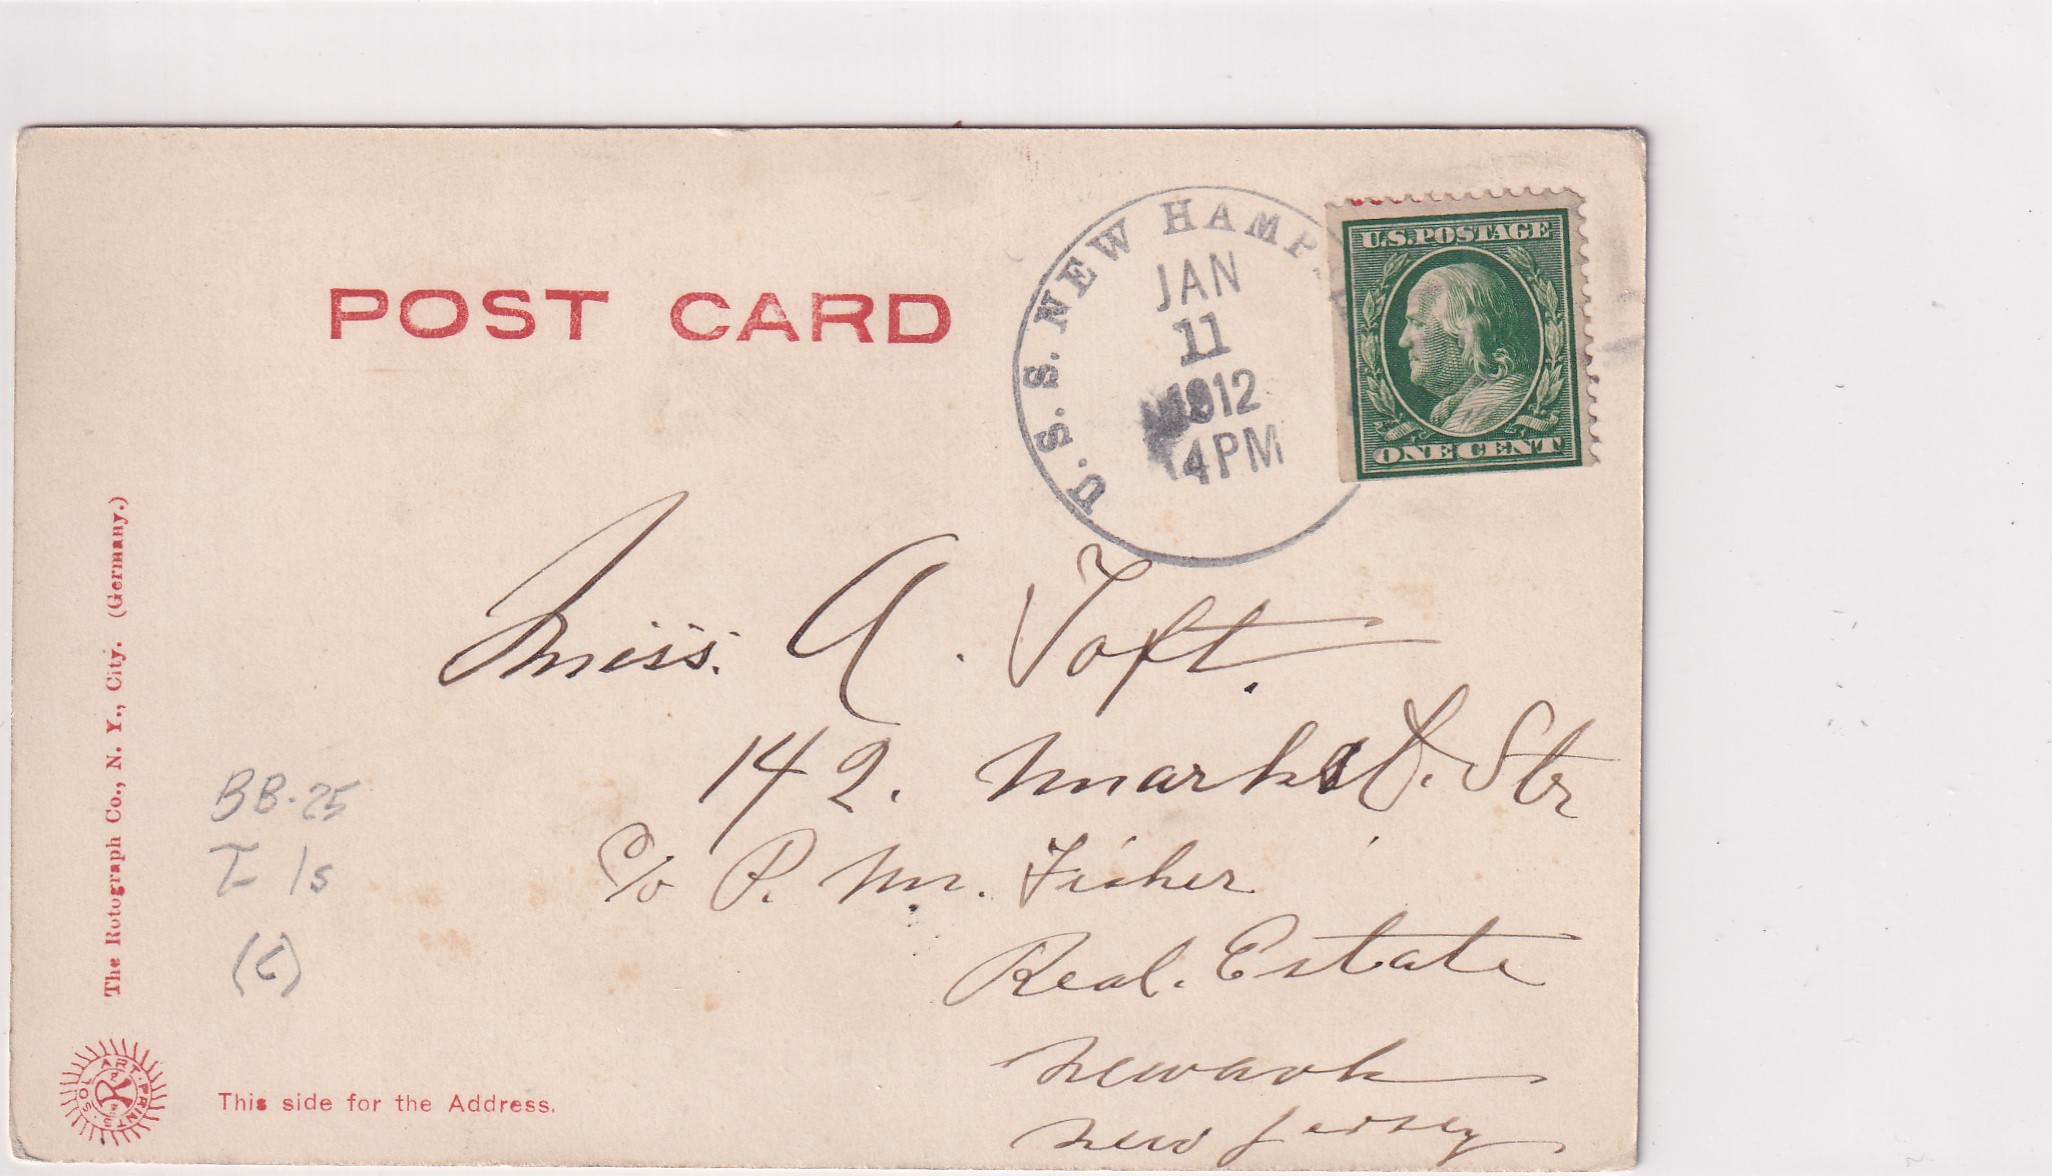 POST CARD
U.S.S. NEW HAMPS
JAN
11
1912
4 PM
U.S. POSTAGE
ONE CENT
Miss. A. Toft.
142. Market. Str
c/o P. M. Fisher
Real. Estate
Newark
New Jersey
BB-25
T-1s
(C)
The Rotograph Co., N. Y., City. (Germany.)
SOL ART PRINTS
This side for the Address.